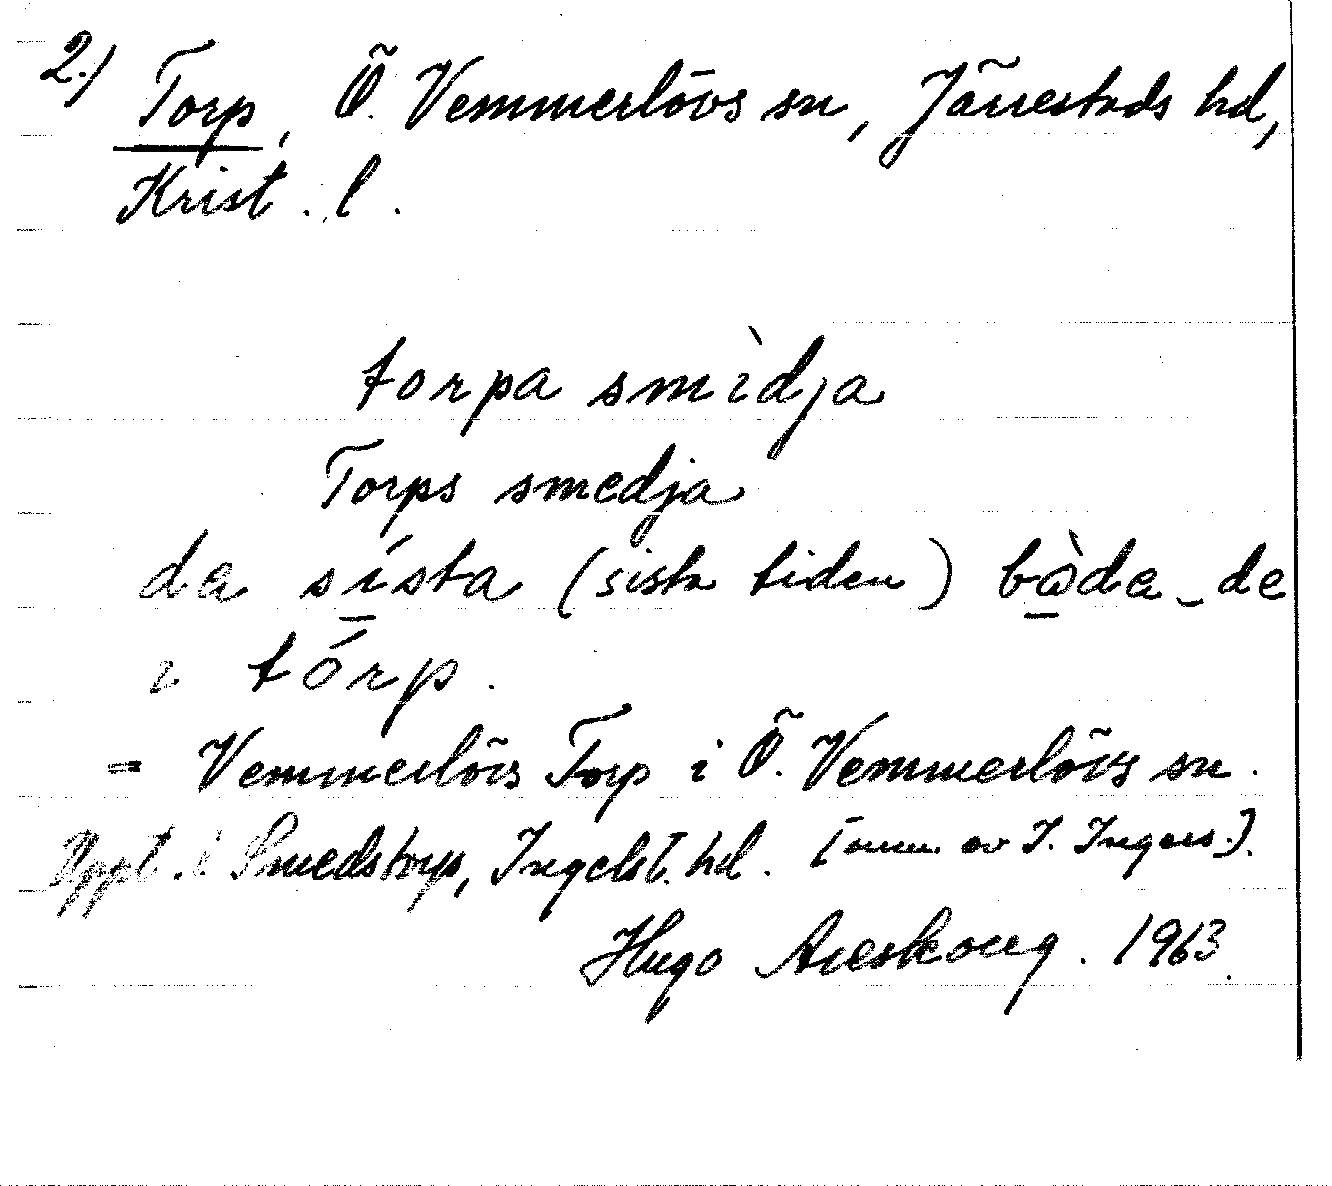 2.) Torp, Ö. Vemmerlövs sn, Järrestads hd,
Krist. l.
torpa smìdja
Torps smedja
da sísta (sista tiden) bòda_de
i tórp.
= Vemmerlövs Torp i Ö. Vemmerlövs sn.
Uppt. i Smedstorp, Ingelst. hd. [anm. av I. Ingers.]
Hugo Areskoug. 1963.